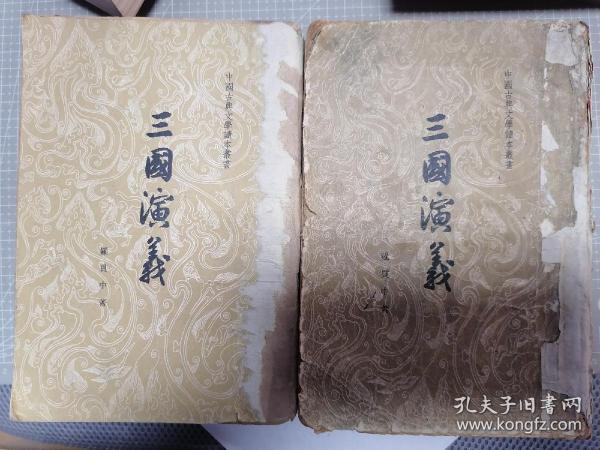 中國古典文學讀本叢書
三國演義
羅貫中著
中國古典文學讀本叢書
三國演義
羅貫中著
孔夫子旧书网